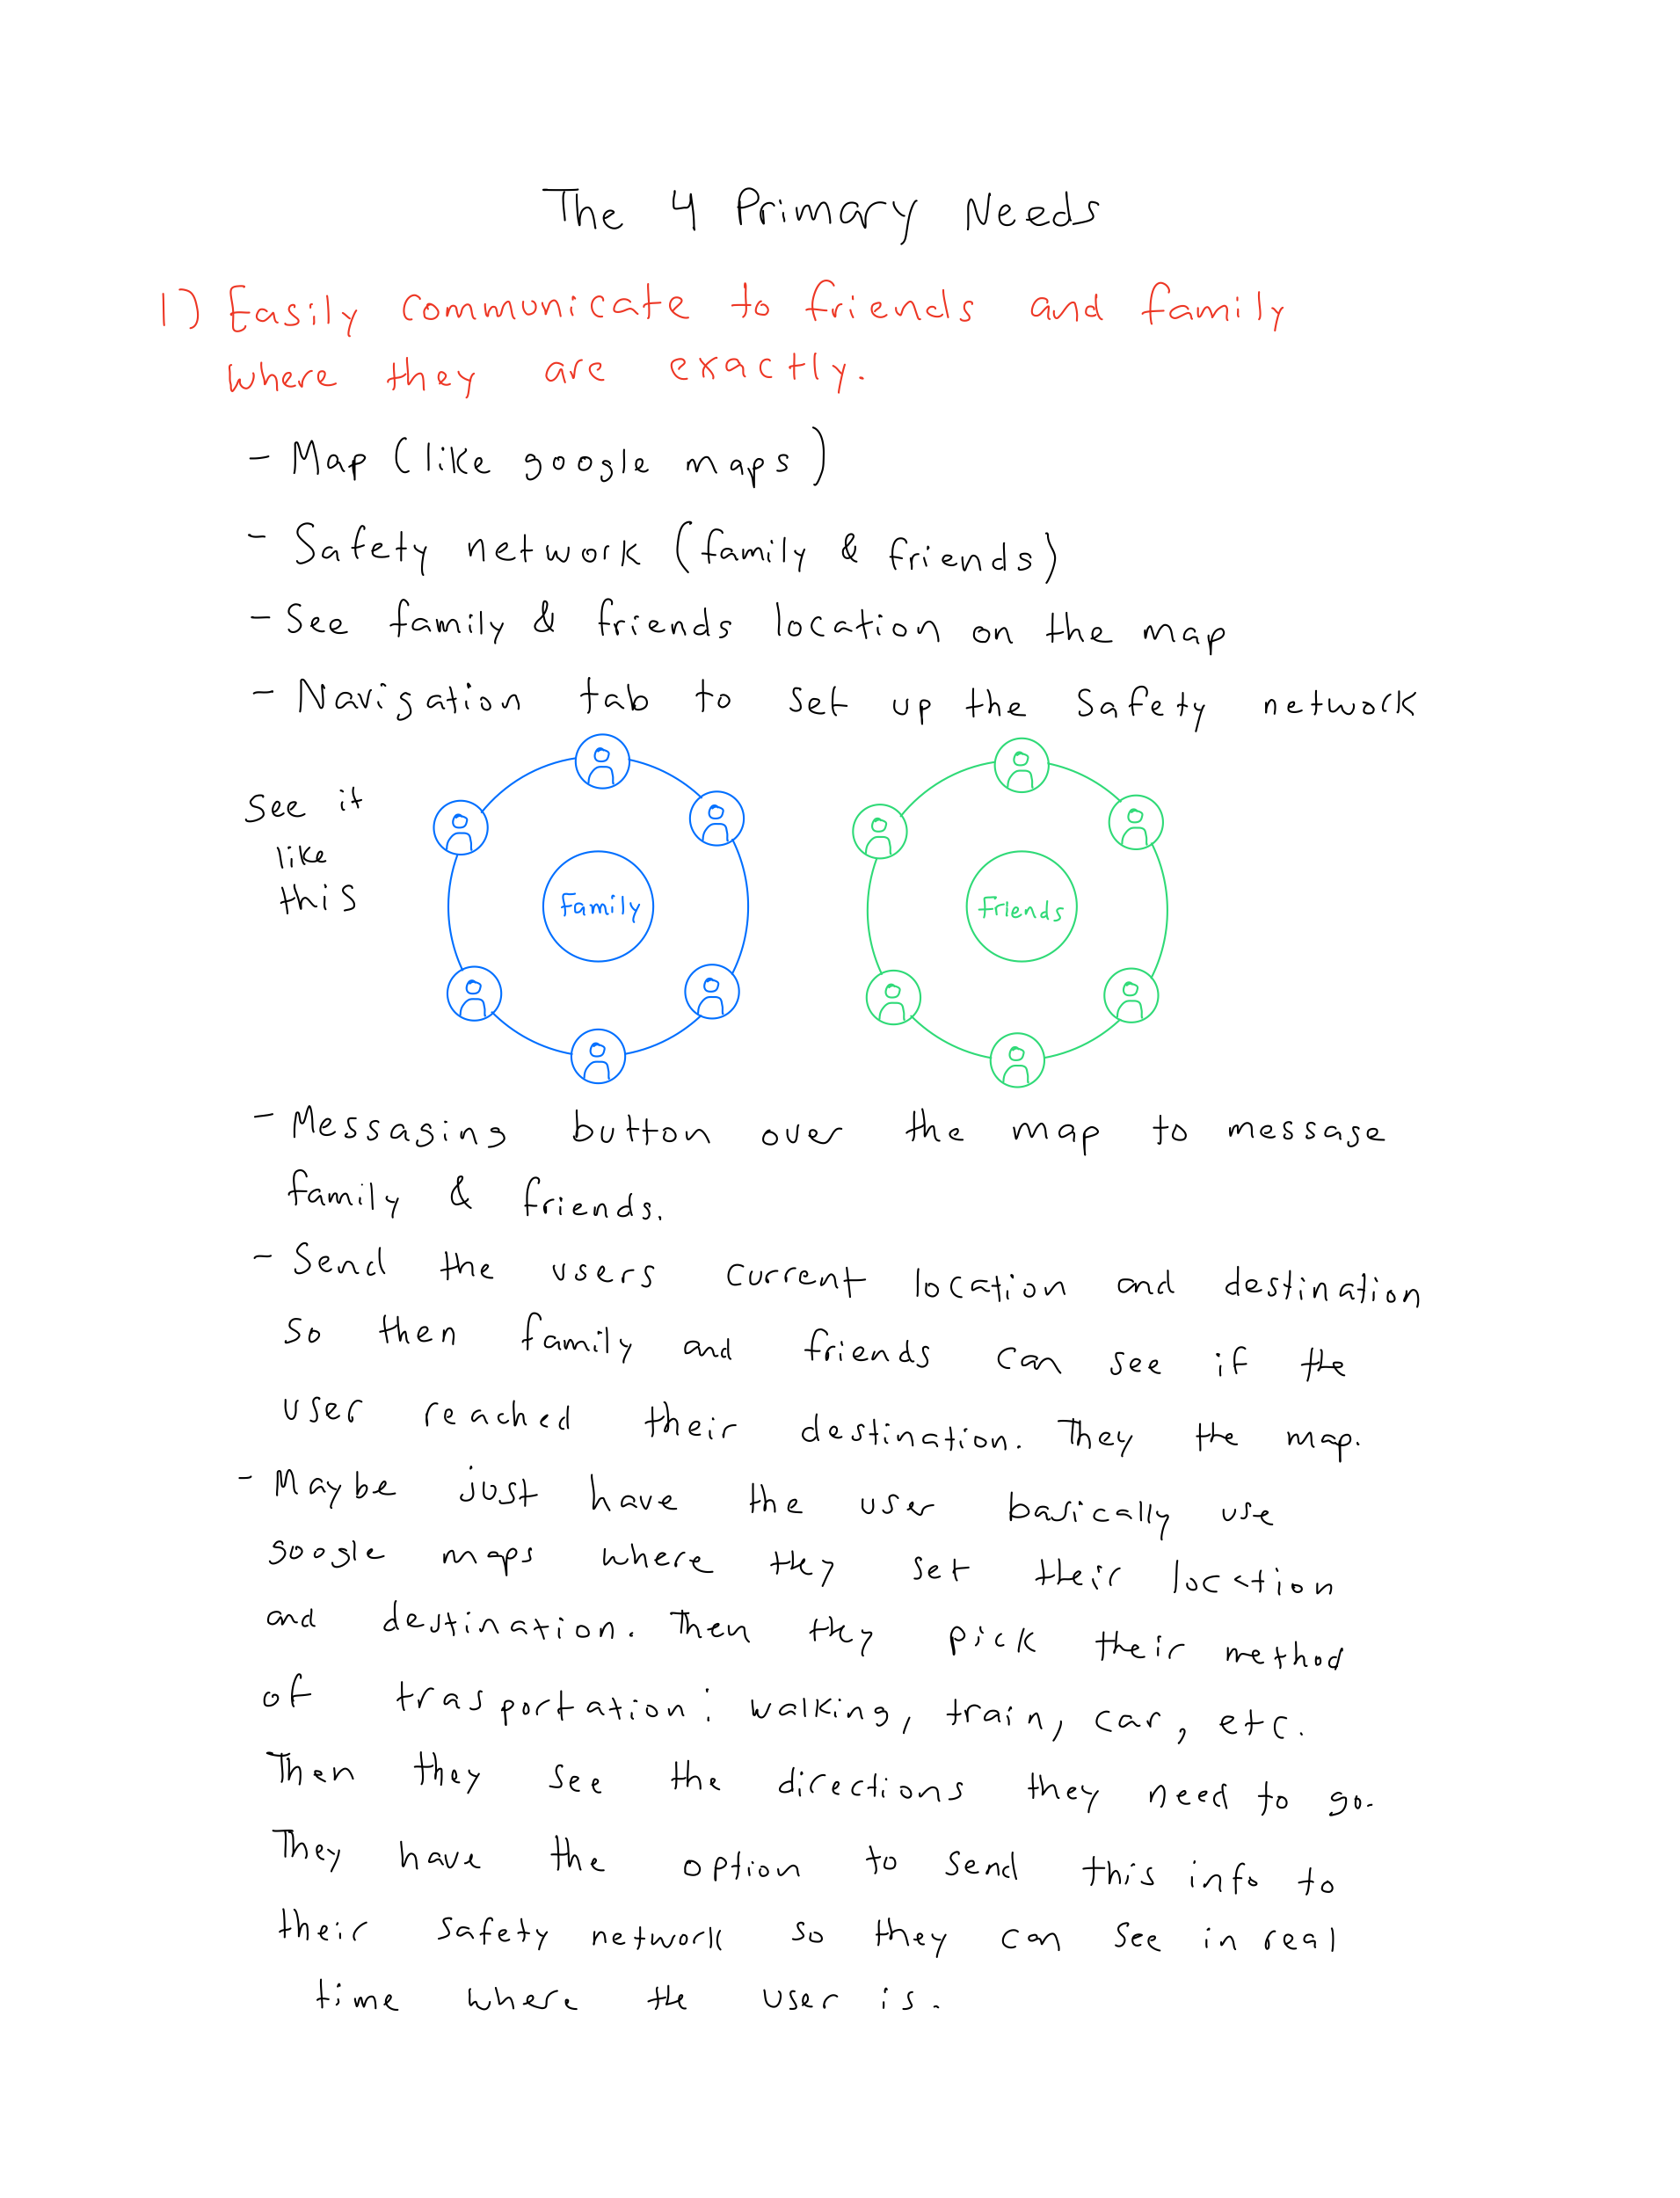 The 4 Primary Needs
1) Easily communicate to friends and family
where they are exactly.
- Map (like google maps)
- Safety network (family & friends)
- See family & friends location on the map
- Navigation tab to set up the safety network
See it
like
this
Family
Friends
- Messaging button over the map to message
family & friends.
- Send the users current location and destination
so then family and friends can see if the
user reached their destination. They the map.
- Maybe just have the user basically use
google maps where they set their location
and destination. Then they pick their method
of trasportation: walking, train, car, etc.
Then they see the directions they need to go.
They have the option to send this info to
their safety network so they can see in real
time where the user is.